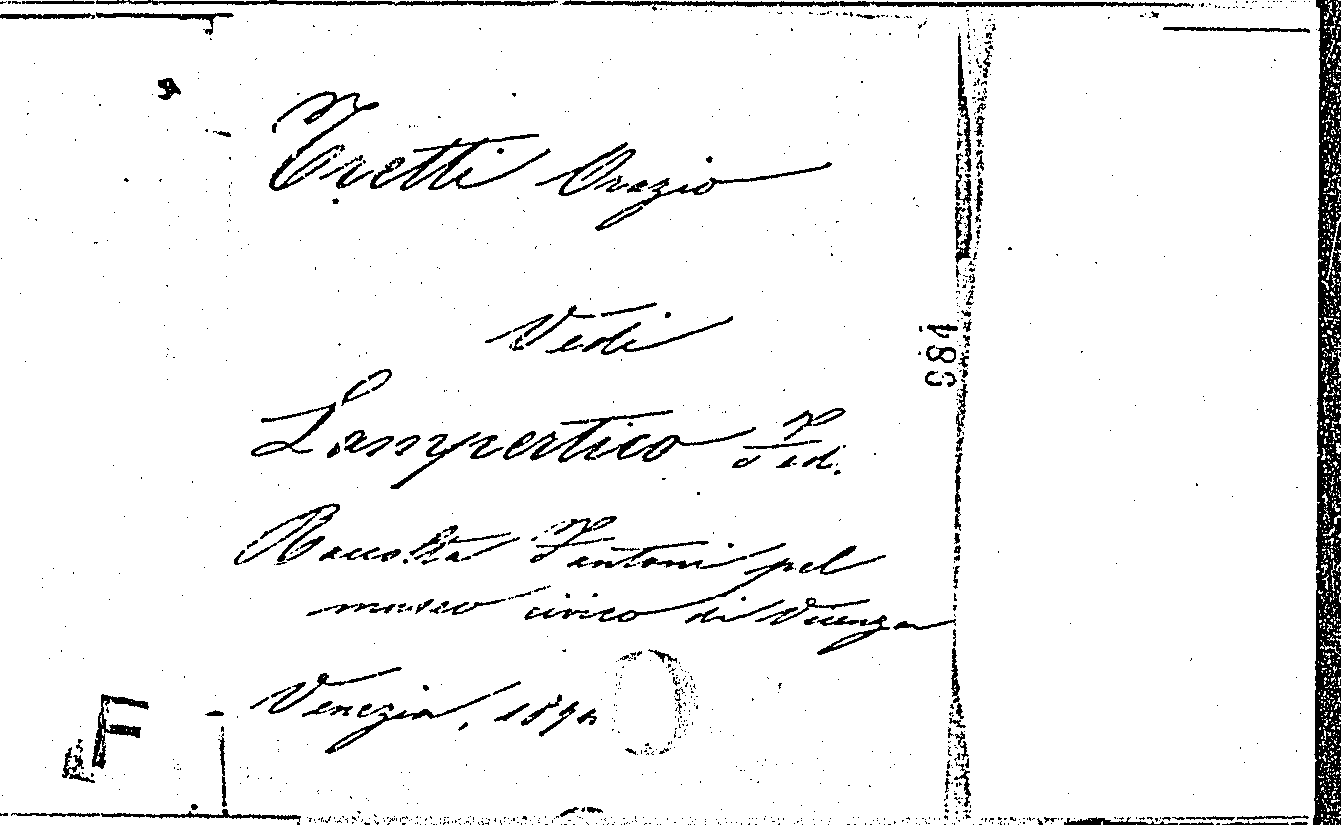 Tretti Orazio
Vedi
Lampertico Fed.
Raccolta Fantoni pel
museo civico di Vicenza
Venezia, 189
984
F